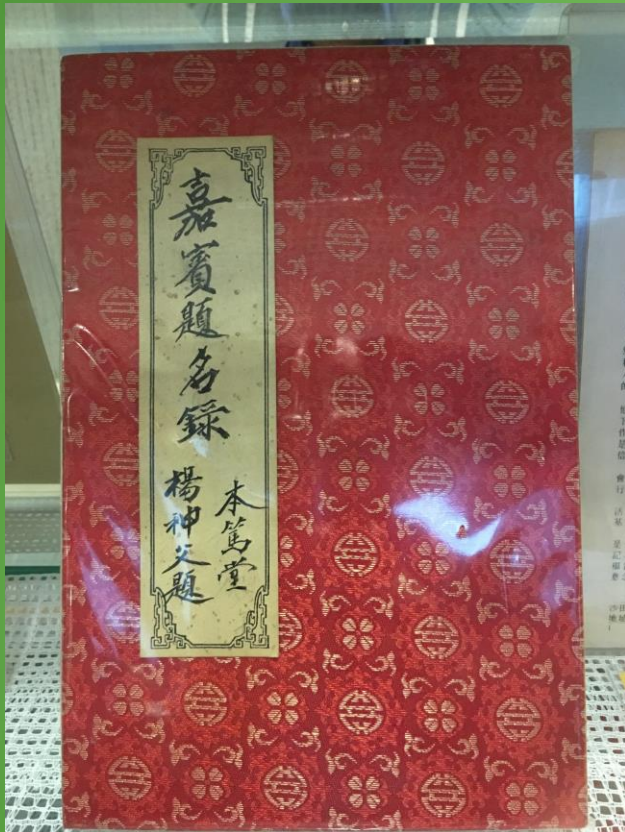 嘉賓題名錄
本篤堂
楊神父題